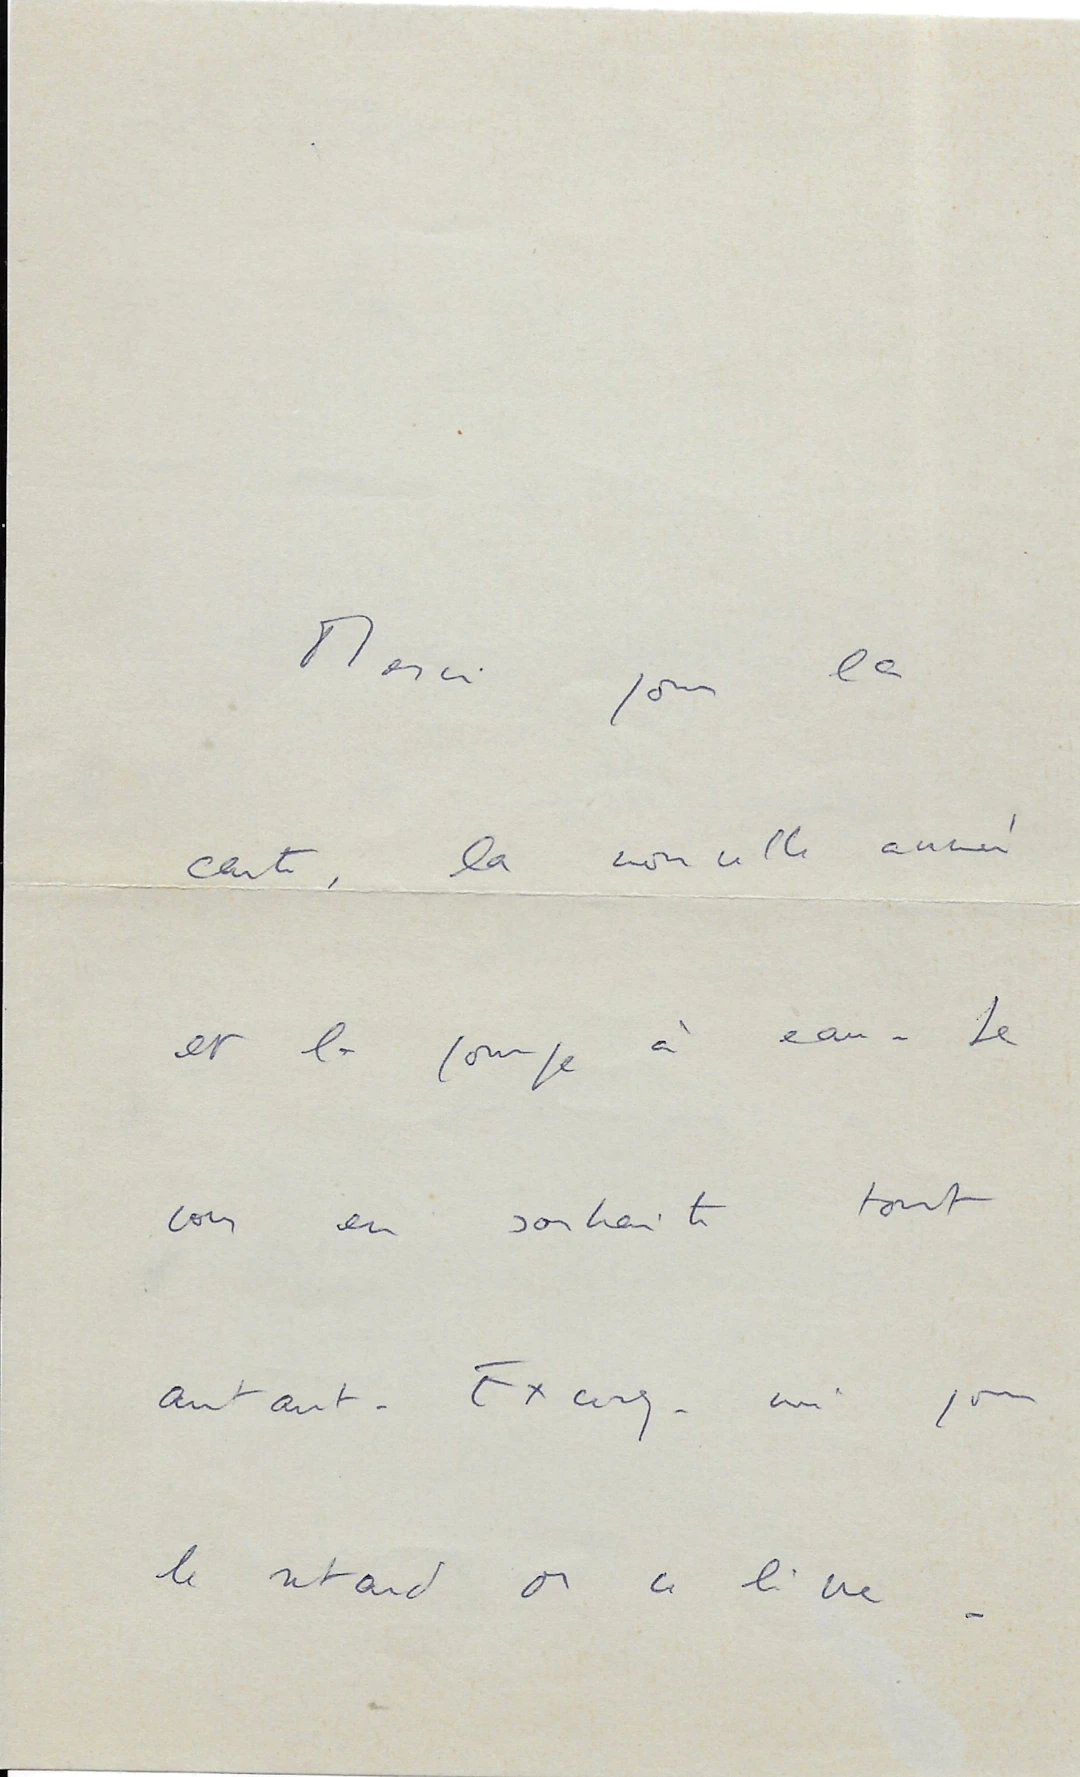 Merci pour la
carte, la nouvelle année
et la pompe à eau. Je
vous en souhaite tout
autant. Excusez-moi pour
le retard de ce livre.